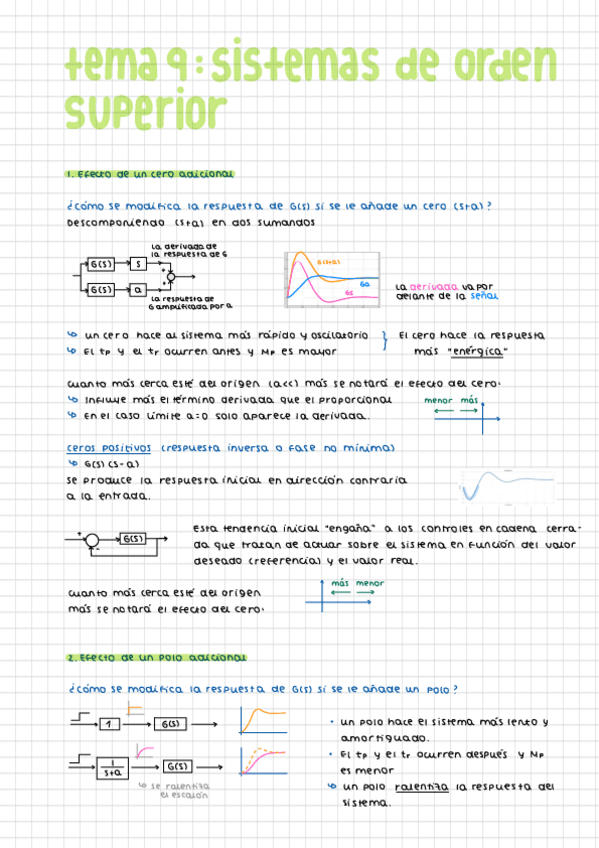 tema 9: sistemas de orden
superior
1. Efecto de un cero adicional
¿cómo se modifica la respuesta de G(s) si se le añade un cero (s+a)?
Descomponiendo (s+a) en dos sumandos
la derivada de
la respuesta de G
G(s)
s
+
+
G(s)
a
la respuesta de
G amplificada por a
G(s+a)
Ga
Gs
la derivada va por
delante de la señal
↳ un cero hace al sistema más rápido y oscilatorio
↳ El tp y el tr ocurren antes y Mp es mayor
} El cero hace la respuesta
más "enérgica"
cuanto más cerca esté del origen (a<<) más se notará el efecto del cero:
↳ Influye más el término derivada que el proporcional
↳ En el caso límite a=0 solo aparece la derivada.
menor más
ceros positivos (respuesta inversa o fase no mínima)
↳ G(s)(s-a)
se produce la respuesta inicial en dirección contraria
a la entrada.
+
-
G(s)
Esta tendencia inicial "engaña" a los controles en cadena cerra-
da que tratan de actuar sobre el sistema en función del valor
deseado (referencia) y el valor real.
cuanto más cerca esté del origen
más se notará el efecto del cero:
más menor
2. Efecto de un polo adicional
¿cómo se modifica la respuesta de G(s) si se le añade un polo?
1
G(s)
1
s+a
G(s)
↳ se ralentiza
el escalón
• un polo hace el sistema más lento y
amortiguado.
• El tp y el tr ocurren después y Mp
es menor
↳ un polo ralentiza la respuesta del
sistema.